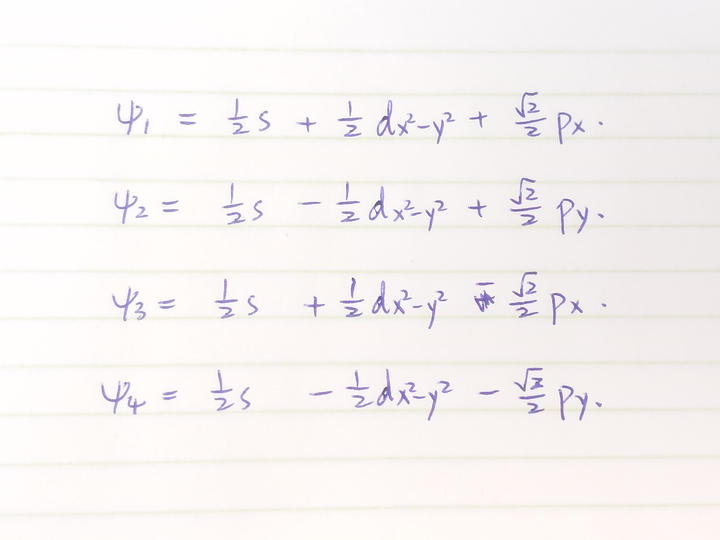 ψ₁ = 1/2 s + 1/2 dx²-y² + √2/2 px.
ψ₂ = 1/2 s - 1/2 dx²-y² + √2/2 py.
ψ₃ = 1/2 s + 1/2 dx²-y² - √2/2 px.
ψ₄ = 1/2 s - 1/2 dx²-y² - √2/2 py.